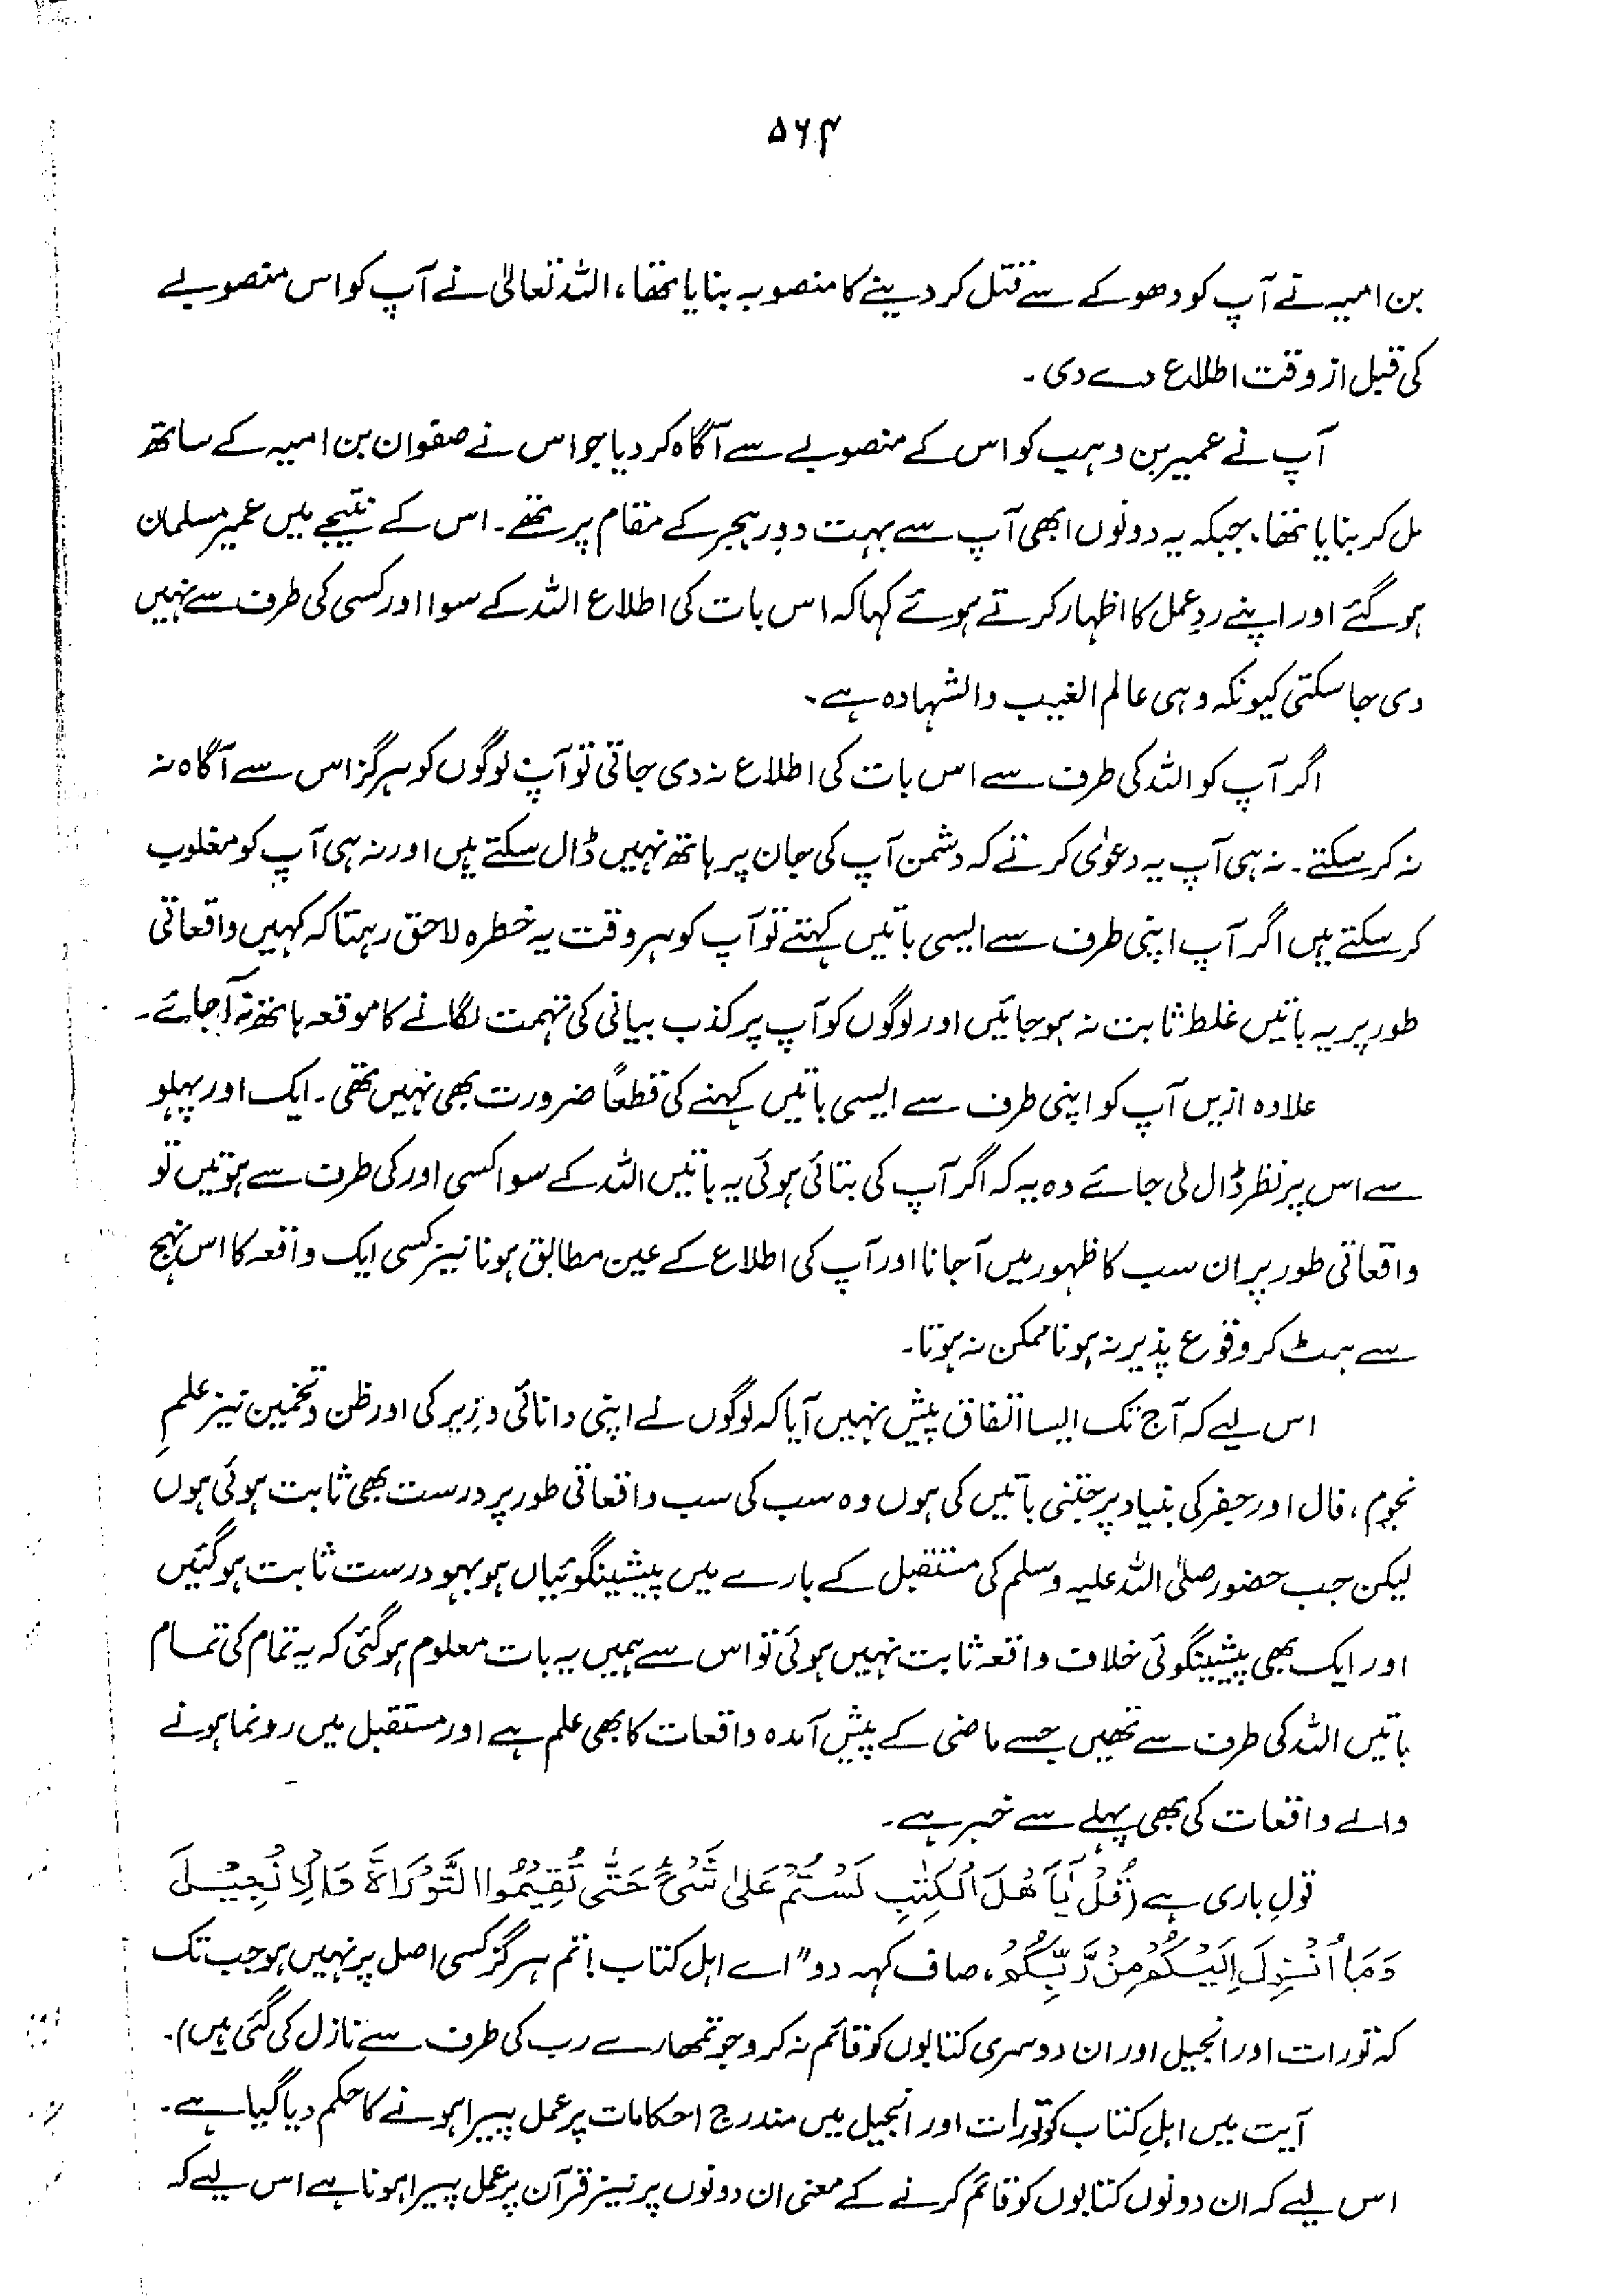 ۵۶۴
بن امیہ نے آپ کو دھوکے سے قتل کر دینے کا منصوبہ بنایا تھا، اللہ تعالیٰ نے آپ کو اس منصوبے
کی قبل از وقت اطلاع دے دی۔
آپ نے عمیر بن وہب کو اس کے منصوبے سے آگاہ کر دیا جو اس نے صفوان بن امیہ کے ساتھ
مل کر بنایا تھا، جبکہ یہ دونوں ابھی آپ سے بہت دور ہجر کے مقام پر تھے۔ اس کے نتیجے میں عمیر مسلمان
ہو گئے اور اپنے ردِ عمل کا اظہار کرتے ہوئے کہا کہ اس بات کی اطلاع اللہ کے سوا اور کسی کی طرف سے نہیں
دی جا سکتی کیونکہ وہی عالم الغیب والشہادہ ہے۔
اگر آپ کو اللہ کی طرف سے اس بات کی اطلاع نہ دی جاتی تو آپ لوگوں کو ہرگز اس سے آگاہ نہ
نہ کر سکتے۔ نہ ہی آپ یہ دعوٰی کرتے کہ دشمن آپ کی جان پر ہاتھ نہیں ڈال سکتے ہیں اور نہ ہی آپ کو مغلوب
کر سکتے ہیں اگر آپ اپنی طرف سے ایسی باتیں کہتے تو آپ کو ہر وقت یہ خطرہ لاحق رہتا کہ کہیں واقعاتی
طور پر یہ باتیں غلط ثابت نہ ہو جائیں اور لوگوں کو آپ پر کذب بیانی کی تہمت لگانے کا موقعہ ہاتھ نہ آ جائے۔
علاوہ ازیں آپ کو اپنی طرف سے ایسی باتیں کہنے کی قطعاً ضرورت بھی نہیں تھی۔ ایک اور پہلو
سے اس پر نظر ڈال لی جائے وہ یہ کہ اگر آپ کی بتائی ہوئی یہ باتیں اللہ کے سوا کسی اور کی طرف سے ہوتیں تو
واقعاتی طور پر ان سب کا ظہور میں آجانا اور آپ کی اطلاع کے عین مطابق ہونا نیز کسی ایک واقعہ کا اس نہج
سے ہٹ کر وقوع پذیر نہ ہونا ممکن نہ ہوتا۔
اس لیے کہ آج تک ایسا اتفاق پیش نہیں آیا کہ لوگوں نے اپنی دانائی و زیرکی اور ظن و تخمین نیز علمِ
نجوم، فال اور جفر کی بنیاد پر جتنی باتیں کی ہوں وہ سب کی سب واقعاتی طور پر درست بھی ثابت ہوئی ہوں
لیکن جب حضور صلی اللہ علیہ وسلم کی مستقبل کے بارے میں پیشینگوئیاں ہو بہو درست ثابت ہو گئیں
اور ایک بھی پیشینگوئی خلاف واقعہ ثابت نہیں ہوئی تو اس سے ہمیں یہ بات معلوم ہو گئی کہ یہ تمام کی تمام
باتیں اللہ کی طرف سے تھیں جسے ماضی کے پیش آمدہ واقعات کا بھی علم ہے اور مستقبل میں رونما ہونے
والے واقعات کی بھی پہلے سے خبر ہے۔
قولِ باری ہے (قُلْ يَآ أَهْلَ الْكِتٰبِ لَسْتُمْ عَلىٰ شَیْءٍ حَتّٰى تُقِيْمُوا التَّوْرَاةَ وَالْاِنْجِيْلَ
وَمَا اُنْزِلَ اِلَيْكُمْ مِنْ رَّبِّكُمْ، صاف کہہ دو" اے اہل کتاب! تم ہرگز کسی اصل پر نہیں ہو جب تک
کہ تورات اور انجیل اور ان دوسری کتابوں کو قائم نہ کرو جو تمھارے رب کی طرف سے نازل کی گئی ہیں)۔
آیت میں اہلِ کتاب کو تورات اور انجیل میں مندرج احکامات پر عمل پیرا ہونے کا حکم دیا گیا ہے۔
اس لیے کہ ان دونوں کتابوں کو قائم کرنے کے معنی ان دونوں پر نیز قرآن پر عمل پیرا ہونا ہے اس لیے کہ